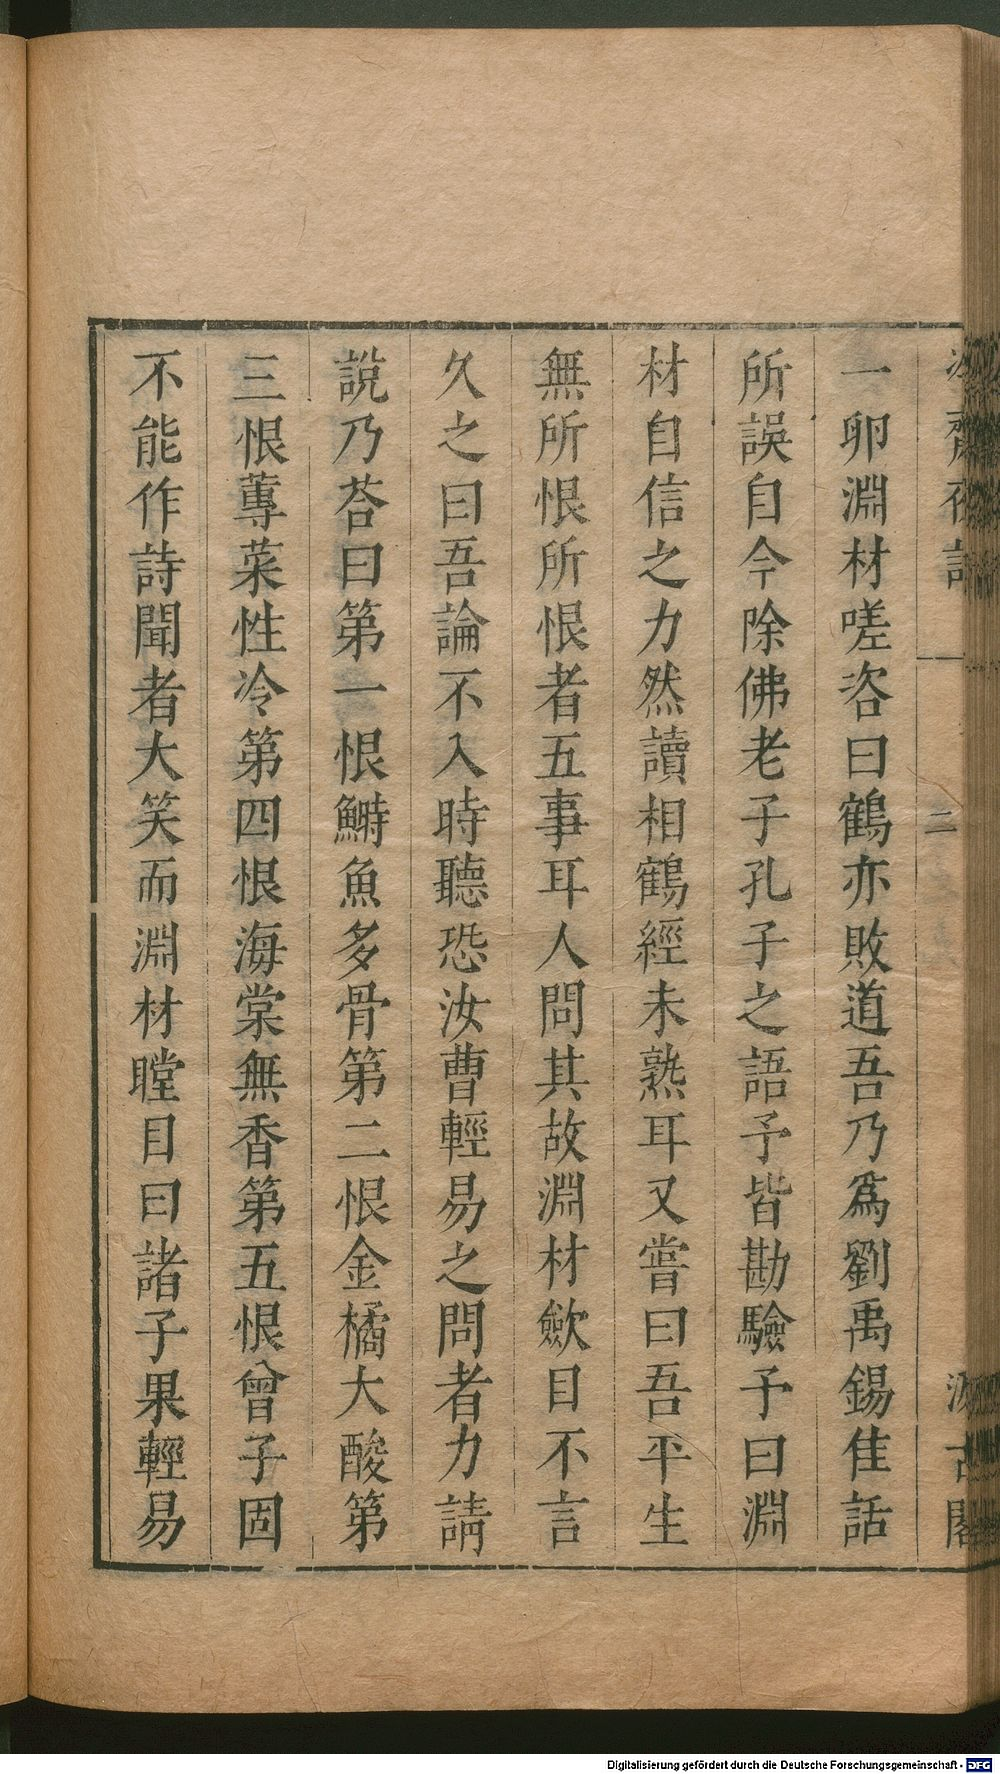 冷齋夜話
二
汲古閣
一卵淵材嗟咨曰鶴亦敗道吾乃爲劉禹錫佳話
所誤自今除佛老子孔子之語予皆勘驗予曰淵
材自信之力然讀相鶴經未熟耳又嘗曰吾平生
無所恨所恨者五事耳人問其故淵材歛目不言
久之曰吾論不入時聽恐汝曹輕易之問者力請
說乃荅曰第一恨鰣魚多骨第二恨金橘大酸第
三恨蓴菜性冷第四恨海棠無香第五恨曾子固
不能作詩聞者大笑而淵材瞠目曰諸子果輕易
Digitalisierung gefördert durch die Deutsche Forschungsgemeinschaft - DFG